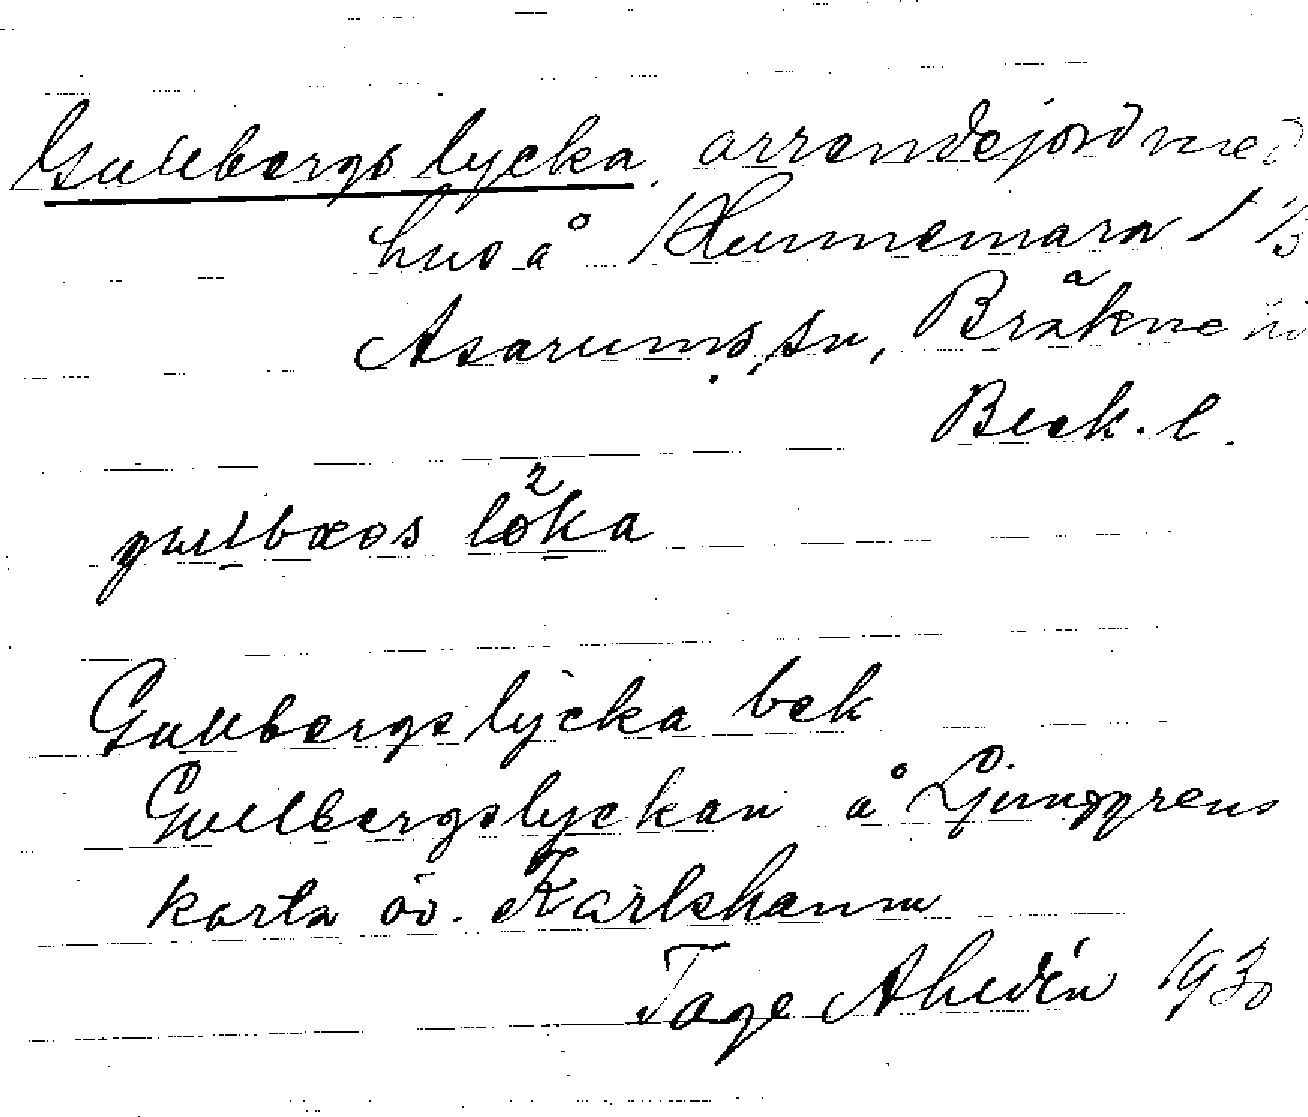 Gullbergs lycka, arrendejord med
hus å Hunnemara 1 1/3
Asarums sn, Bräkne
Blek. l.
gullbæos löka
Gullbergslycka bek
Gullbergslyckan å Ljunggrens
karta öv. Karlshamn
Tage Ahldén 1930